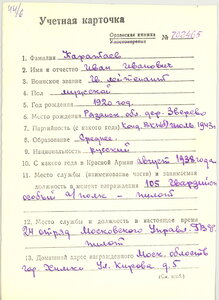 Учетная карточка
Орденская книжка
Удостоверение
№ 202465
1. Фамилия Каратаев
2. Имя и отчество Иван Иванович
3. Воинское звание Гв. лейтенант
4. Пол мужской
5. Год рождения 1920 год.
6. Место рождения Рязанск. обл. дер. Зверево
7. Партийность (с какого года) Канд. ВКП(б) июль 1943.
8. Образование Среднее.
9. Национальность русский
10. С какого года в Красной Армии август 1938 года
11. Место службы (наименование части) и занимаемая
должность в момент награждения 105 Гвардейск
особый а/полк - пилот
12. Место службы и должность в настоящее время
24 отряд Московского Управл. ГВФ
пилот
13. Домашний адрес награжденного Моск. область
гор. Химки Ул. Кирова д. 5